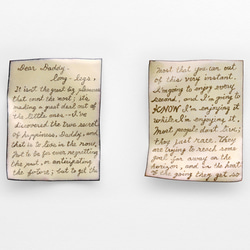 Dear Daddy-
long-legs.
It isn't the great big pleasures
that count the most; it's
making a great deal out of
the little ones—I've
discovered the true secret
of happiness, Daddy, and
that is to live in the now.
Not to be for ever regretting
the past, or anticipating
the future; but to get the
most that you can out
of this very instant.
I'm going to enjoy every
second, and I'm going to
KNOW I'm enjoying it
while I'm enjoying it.
Most people don't live;
they just race. They
are trying to reach some
goal far away on the
horizon, and in the heat
of the going they get so